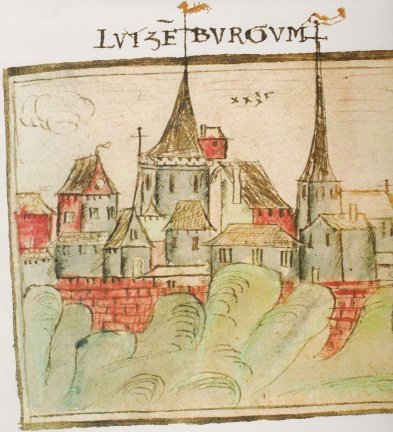 LVTZĒBVRGVM